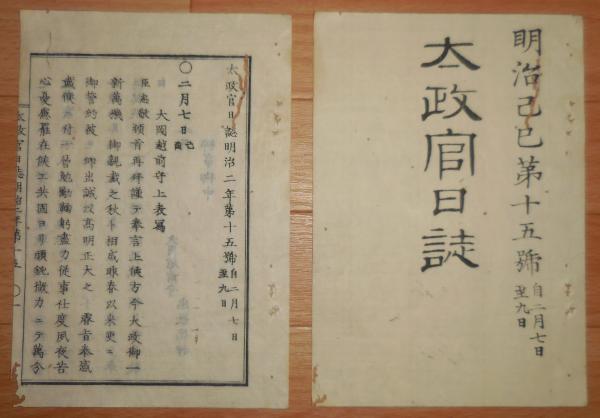 明治己巳第十五號 自二月七日 至九日
太政官日誌
太政官日誌明治二年第十五號 自二月七日 至九日
〇二月七日 己酉
大岡越前守上表寫
臣忠敬頓首再拜謹テ奉言上候方今大政御一
新萬機御親裁之秋ニ相成昨春以來更ニ
御誓約被 仰出誠以高明正大之 聖旨奉感
戴候ニ付
心憂慮罷在候
太政官日誌明治二年第十五 〇一